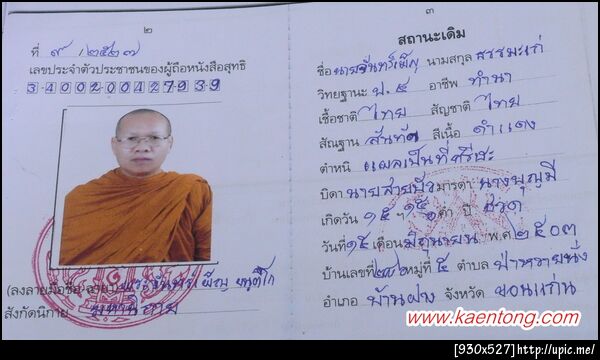 ๒
ที่ ๙ / ๒๕๒๗
เลขประจำตัวประชาชนของผู้ถือหนังสือสุทธิ
3 4 0 0 2 0 0 4 2 7 9 3 9
(ลงลายมือชื่อ ฉายา) พระจันทร์เพ็ญ
สังกัดนิกาย มหานิกาย
๓
สถานะเดิม
ชื่อ นายจันทร์เพ็ญ นามสกุล ธรรมะเก่
วิทยฐานะ ป.๔ อาชีพ ทำนา
เชื้อชาติ ไทย สัญชาติ ไทย
สัณฐาน สันทัด สีเนื้อ ดำแดง
ตำหนิ แผลเป็นที่ศรีษะ
บิดา นายสายบัว มารดา นางบุญมี
เกิดวัน ๑๕ ฯ ค่ำ ปี ชวด
วันที่ ๑๕ เดือน มิถุนายน พ.ศ. ๒๕๐๓
บ้านเลขที่ หมู่ที่ ๕ ตำบล ป่าหวายนั่ง
อำเภอ บ้านฝาง จังหวัด ขอนแก่น
www.kaentong.com
[930x527] http://upic.me/